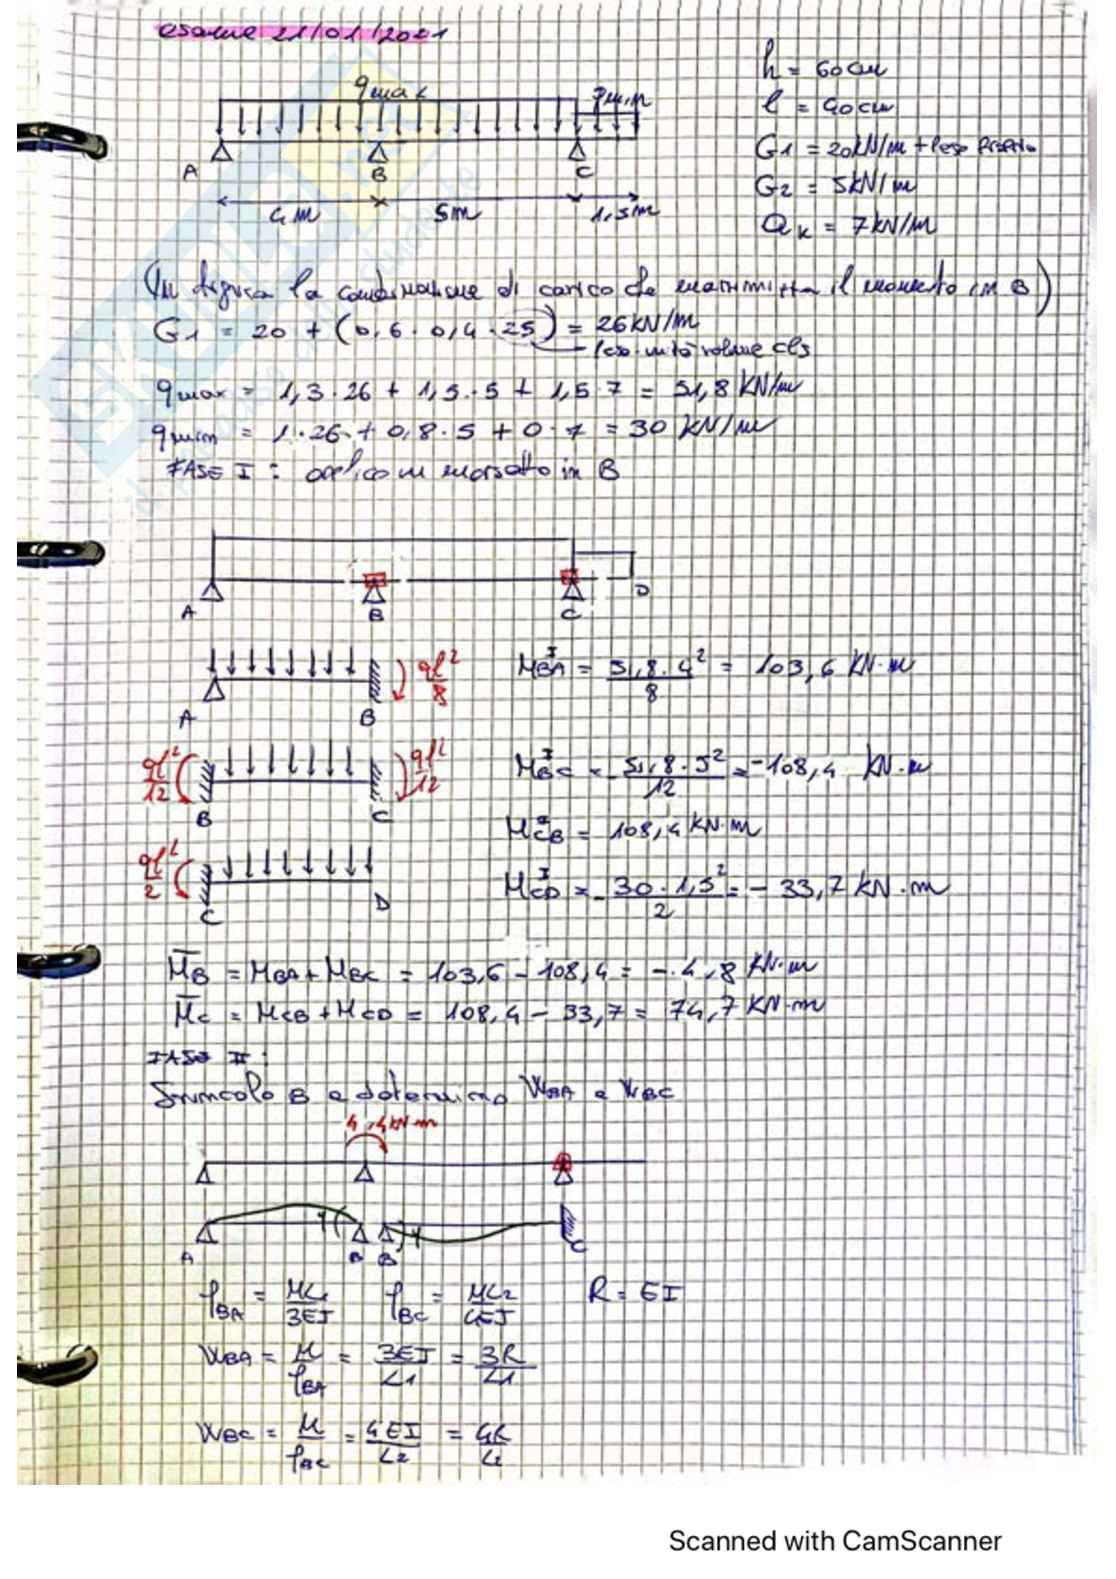 esame 21/01/2021
h = 60cm
qmax
qmin
l = 40cm
G1 = 20kN/m + Peso Proprio
A B C
G2 = 5kN/m
4m 5m 1,5m
Qk = 7kN/m
(In figura la combinazione di carico che massimizza il momento in B)
G1 = 20 + (0,6 · 0,4 · 25) = 26kN/m
peso unità volume cls
qmax = 1,3 · 26 + 1,5 · 5 + 1,5 · 7 = 51,8 KN/m
qmin = 1 · 26 + 0,8 · 5 + 0 · 7 = 30 KN/m
FASE I : applico un morsetto in B
A B C D
A B
ql²/8
M^I BA = 51,8 · 4²/8 = 103,6 KN·m
ql²/12
B C
ql²/12
M^I BC = - 51,8 · 5²/12 = -108,4 KN·m
M^I CB = 108,4 KN·m
ql²/2
C D
M^I CD = - 30 · 1,5²/2 = - 33,7 KN·m
M̄B = MBA + MBC = 103,6 - 108,4 = - 4,8 KN·m
M̄C = MCB + MCD = 108,4 - 33,7 = 74,7 KN·m
FASE II :
Svincolo B e determino WBA e WBC
A B B C
φBA = ML1/3EI φBC = ML2/4EI R = EI
WBA = M/φBA = 3EI/L1 = 3R/L1
WBC = M/φBC = 4EI/L2 = 4R/L2
Scanned with CamScanner